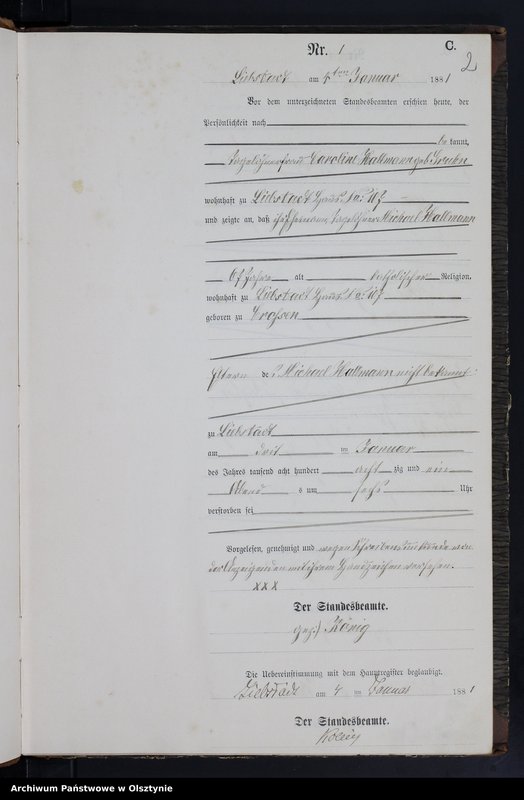 Nr. 1
C.
2
Liebstadt am 4ten Januar 1881
Vor dem unterzeichneten Standesbeamten erschien heute, der
Persönlichkeit nach
be kannt,
Tagelöhnerfrau Caroline Hallmann geb.
wohnhaft zu Liebstadt Haus No: 107
und zeigte an, daß ihr Ehemann, Tagelöhner Michael Hallmann
67 Jahre alt katholischer Religion,
wohnhaft zu Liebstadt Haus No: 107
geboren zu Crossen
Eltern de Michael Hallmann nicht bekannt
zu Liebstadt
am drei im Januar
des Jahres tausend acht hundert acht zig und ein
Abend s um sechs Uhr
verstorben sei
Vorgelesen, genehmigt und wegen Schreibensunkunde von
der Anzeigenden mit ihrem Handzeichen versehen.
X X X
Der Standesbeamte.
gez:) König
Die Uebereinstimmung mit dem Hauptregister beglaubigt.
Liebstadt am 4 im Januar 1881
Der Standesbeamte.
König
Archiwum Państwowe w Olsztynie